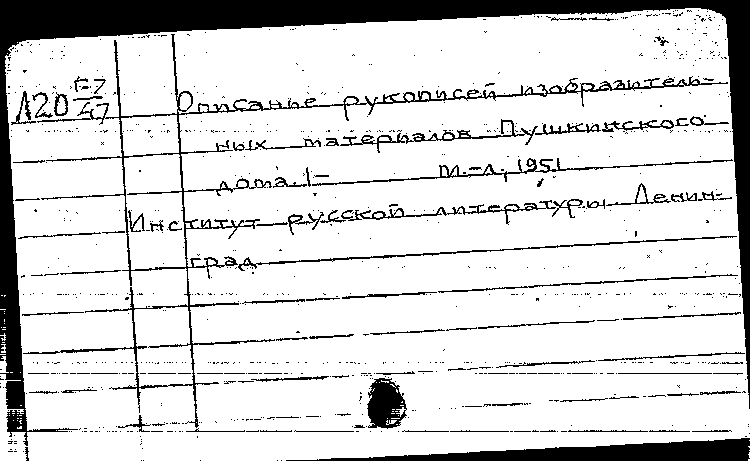 Л20 Г-7/47 Описание рукописей изобразитель-
ных материалов Пушкинского
дома. 1- М.-Л., 1951
Институт русской литературы. Ленин-
град